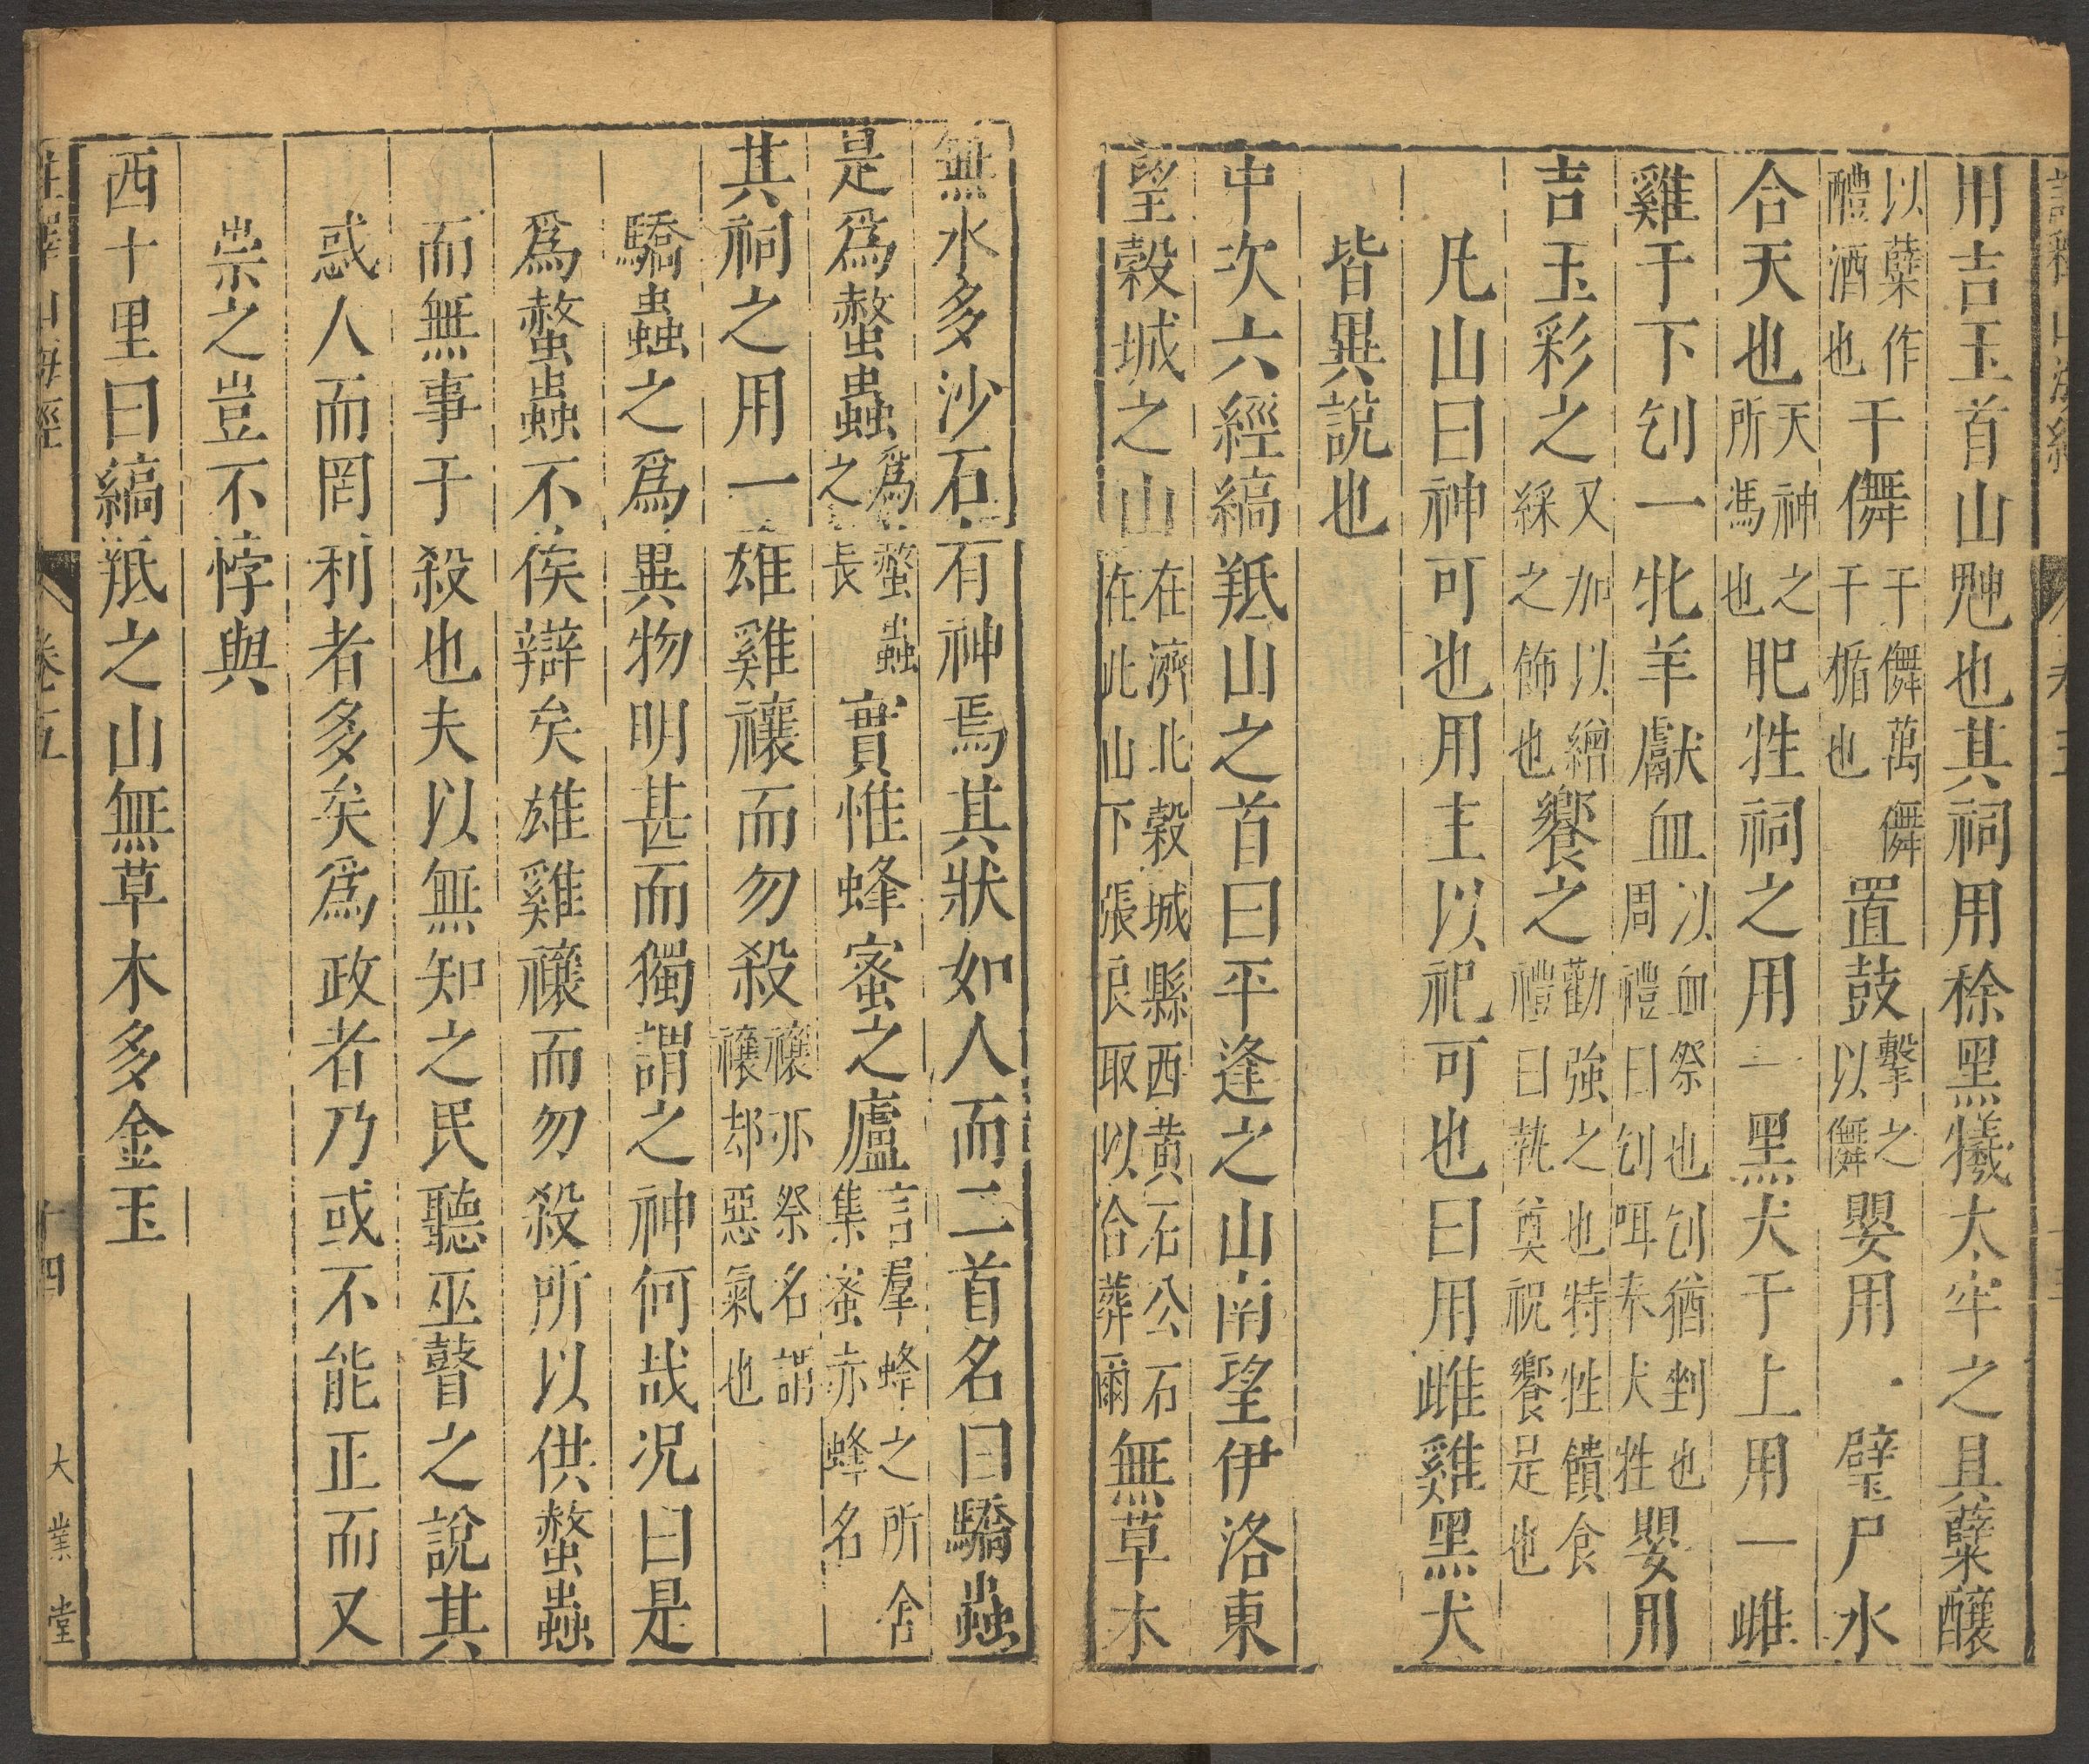 用吉玉首山䰠也其祠用稌黑犧太牢之具糱釀
以糱作醴酒也干儛干儛萬儛干楯也置鼓擊之以儛嬰用璧尸水
合天也天神之所馮也肥牲祠之用一黑犬于上用一雌
雞于下刉一牝羊獻血以血祭也刉猶刲也周禮曰刉珥奉犬牲嬰用
吉玉彩之又加以繒綵之飾也饗之勸強之也特牲饋食禮曰執奠祝饗是也
凡山曰神可也用主以祀可也曰用雌雞黑犬
皆異說也
中次六經縞羝山之首曰平逢之山南望伊洛東
望穀城之山在濟北穀城縣西黄石公石在此山下張良取以合葬爾無草木
無水多沙石有神焉其狀如人而二首名曰驕蟲
是爲螫蟲爲螫蟲之長實惟蜂蜜之廬言羣蜂之所舍集蜜赤蜂名
其祠之用一雄雞禳而勿殺禳亦祭名謂禳却惡氣也
驕蟲之爲異物明甚而獨謂之神何哉况曰是
爲螫蟲不俟辯矣雄雞禳而勿殺所以供螫蟲
而無事于殺也夫以無知之民聽巫瞽之說其
惑人而罔利者多矣爲政者乃或不能正而又
崇之豈不悖與
西十里曰縞羝之山無草木多金玉
山海經
卷五
十四
大業堂